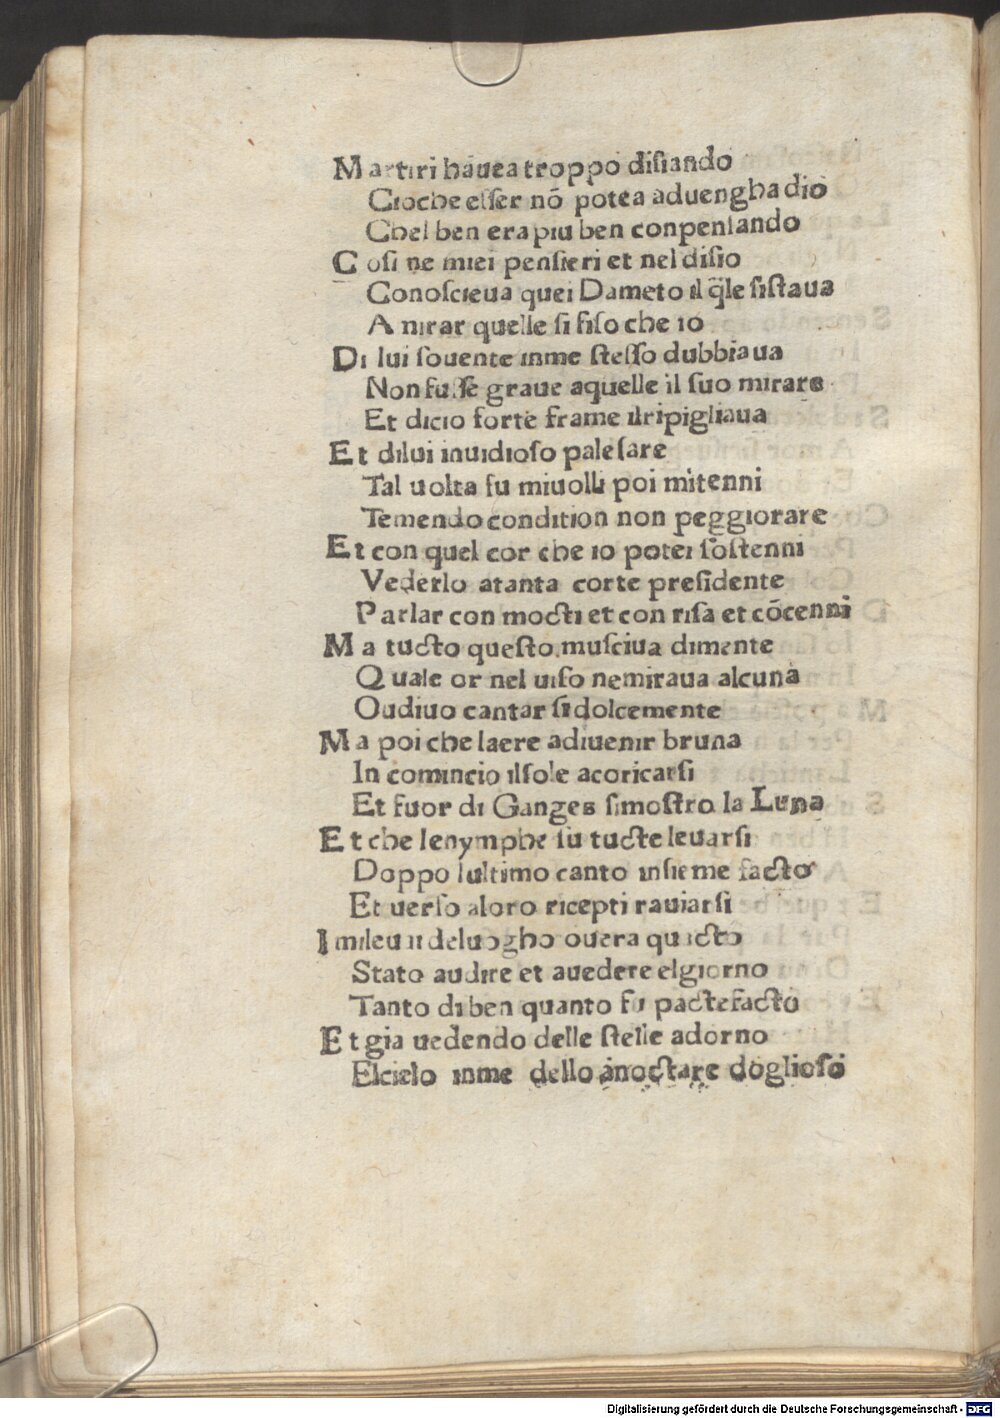 Martiri hauea troppo disiando
Cioche esser nō potea aduengha dio
Chel ben era piu ben conpensando
Cosi ne miei pensieri et nel disio
Conoscieua quei Dameto il q̄le sistaua
A mirar quelle si fiso che io
Di lui souente inme stesso dubbiaua
Non fusse graue aquelle il suo mirare
Et dicio forte frame ilripigliaua
Et dilui inuidioso palesare
Tal uolta fu miuolli poi mitenni
Temendo condition non peggiorare
Et con quel cor che io potei sostenni
Vederlo atanta corte presidente
Parlar con mocti et con risa et cōcenni
Ma tucto questo musciua dimente
Quale or nel uiso nemiraua alcuna
Oudiuo cantar si dolcemente
Ma poi che laere adiuenir bruna
In comincio ilsole acoricarsi
Et fuor di Ganges simostro la Luna
Et che lenymphe su tucte leuarsi
Doppo lultimo canto insieme facto
Et uerso aloro ricepti rauiarsi
Imileuai deluogho ouera quacto
Stato audire et auedere elgiorno
Tanto di ben quanto fu pactefacto
Et gia uedendo delle stelle adorno
Elcielo inme dello anoctare dogliosi
Digitalisierung gefördert durch die Deutsche Forschungsgemeinschaft - DFG